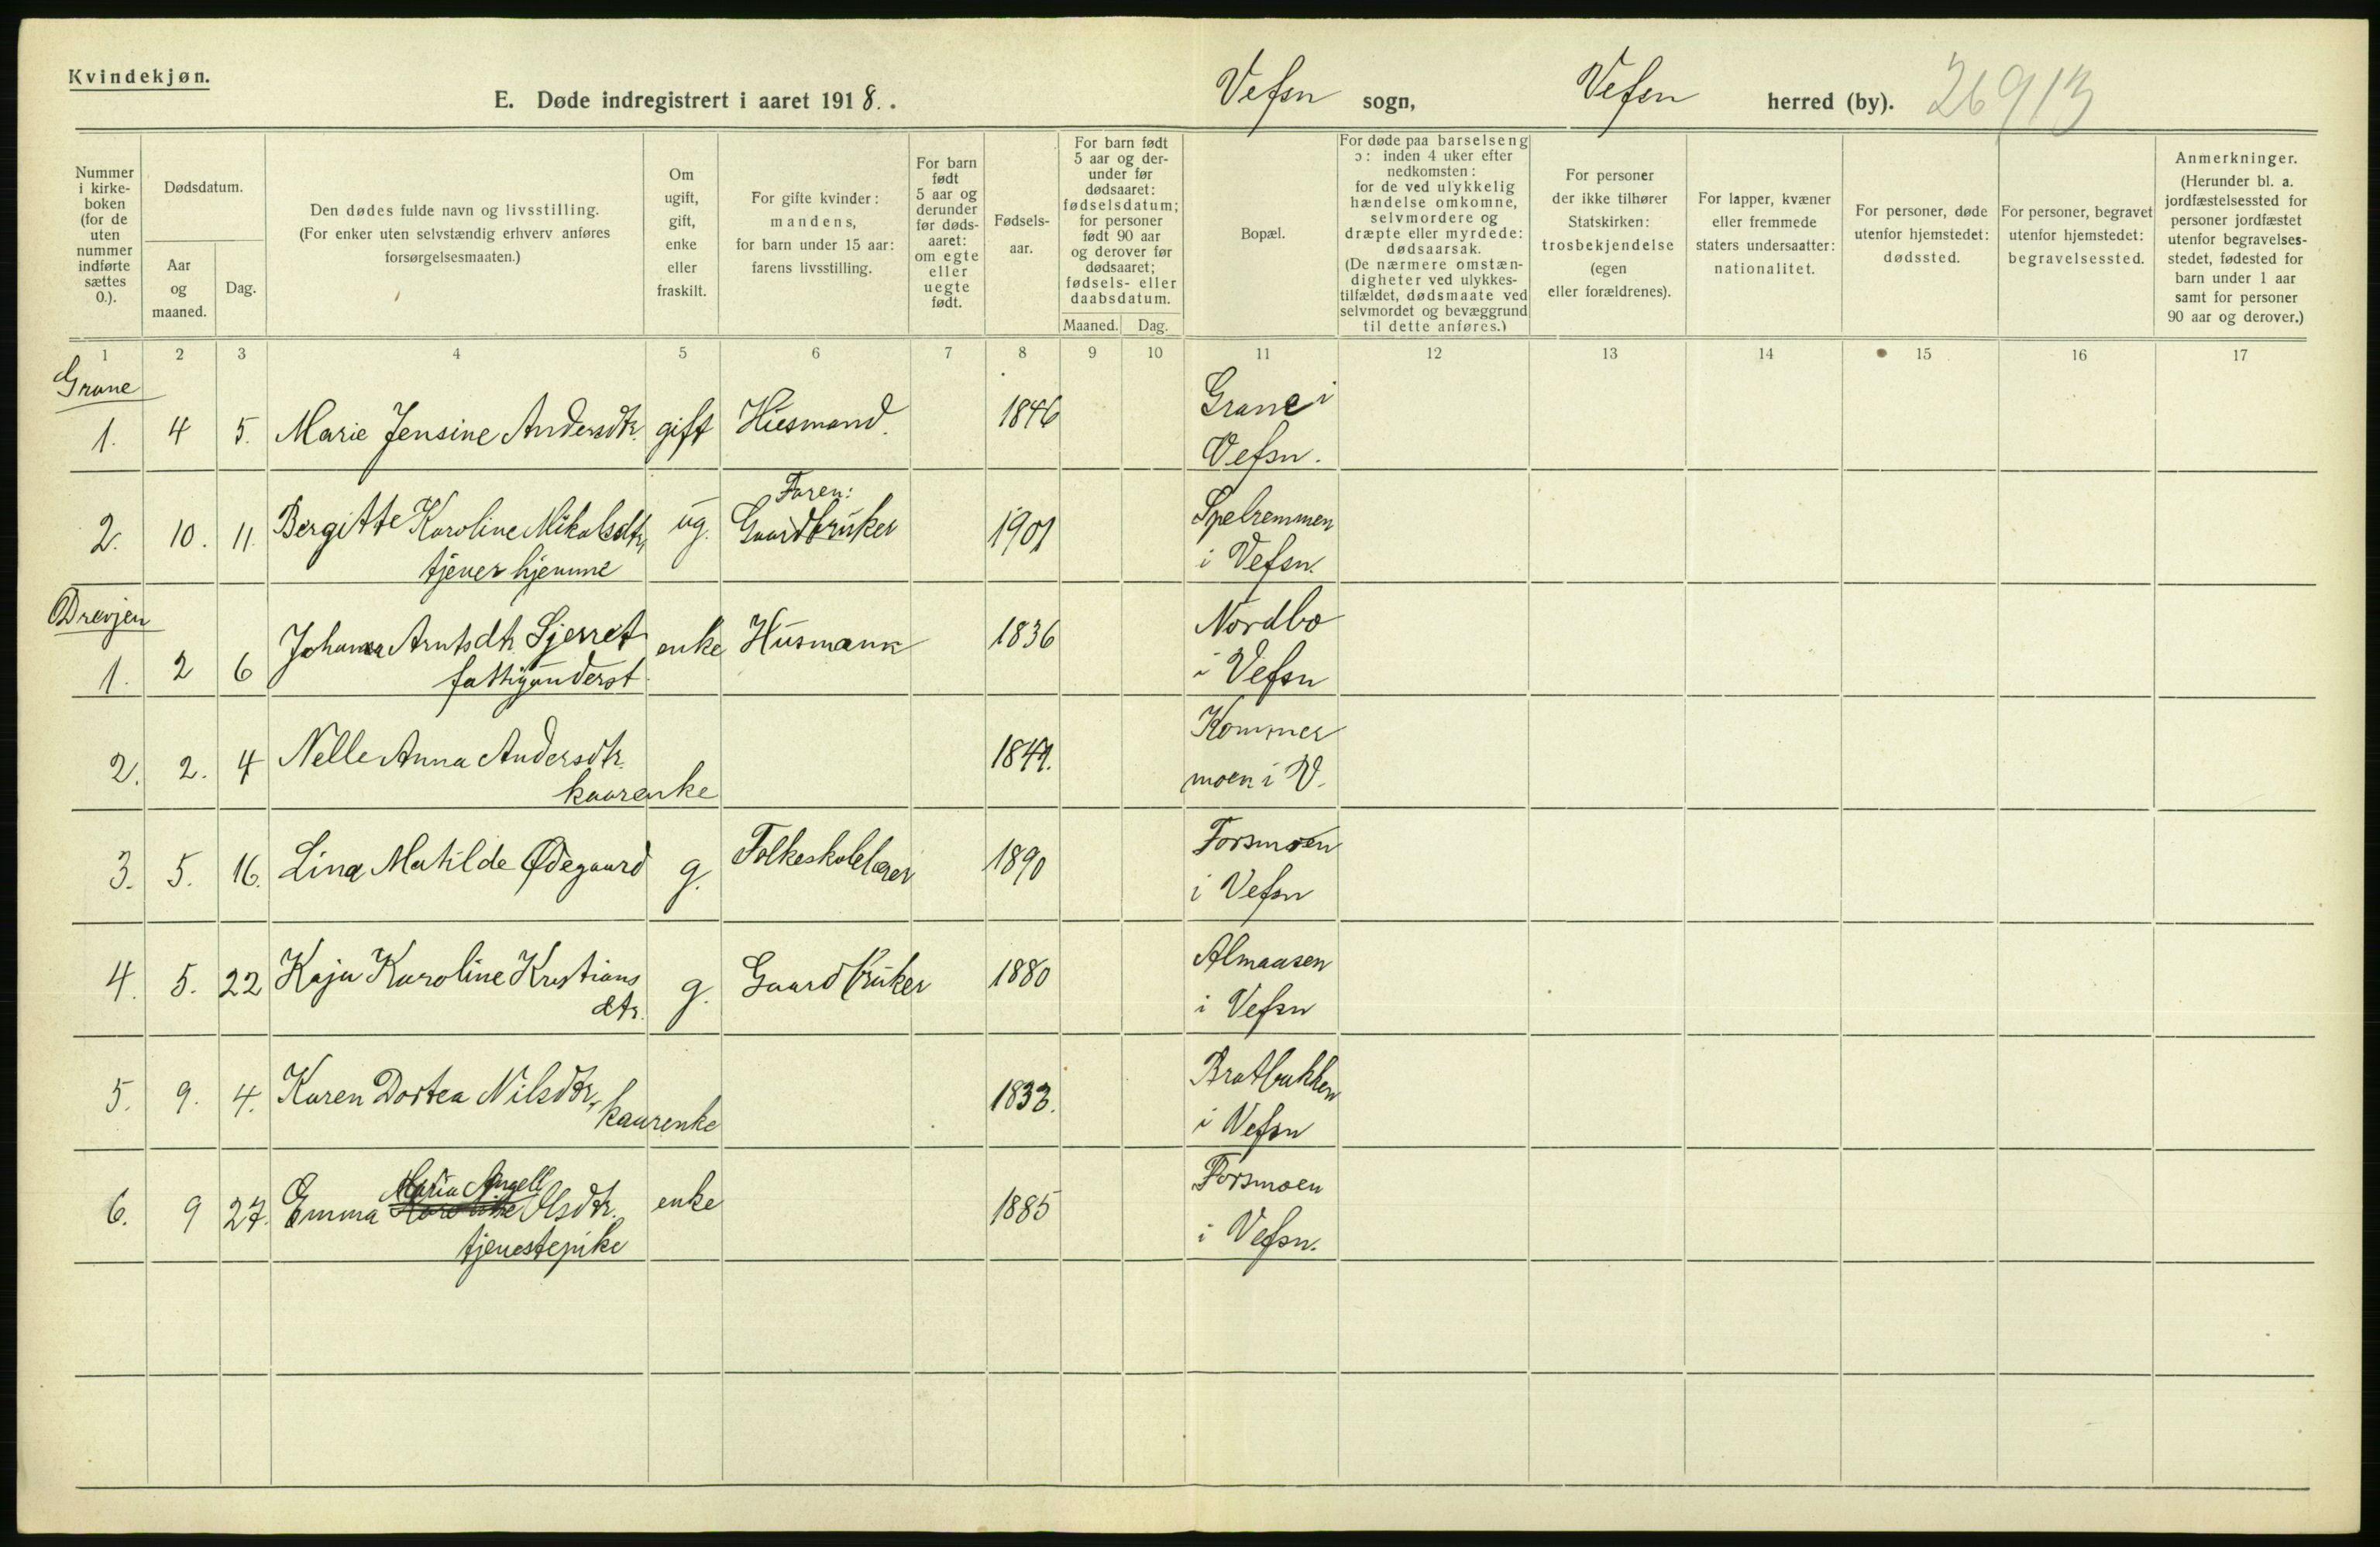 Kvindekjøn.
E. Døde indregistrert i aaret 1918. .
Vefsn sogn, Vefsn herred (by). 26913
Nummer i kirkeboken (for de uten nummer indførte sættes 0.).
Dødsdatum.
Aar og maaned.
Dag.
Den dødes fulde navn og livsstilling.
(For enker uten selvstændig erhverv anføres
forsørgelsesmaaten.)
Om ugift, gift, enke eller fraskilt.
For gifte kvinder:
mandens,
for barn under 15 aar:
farens livsstilling.
For barn født 5 aar og derunder før dødsaaret: om egte eller uegte født.
Fødselsaar.
For barn født 5 aar og derunder før dødsaaret: fødselsdatum; for personer født 90 aar og derover før dødsaaret; fødsels- eller daabsdatum.
Maaned. Dag.
Bopæl.
For døde paa barselseng
ɔ: inden 4 uker efter
nedkomsten:
for de ved ulykkelig
hændelse omkomne,
selvmordere og
dræpte eller myrdede:
dødsaarsak.
(De nærmere omstæn-
digheter ved ulykkes-
tilfældet, dødsmaate ved
selvmordet og bevæggrund
til dette anføres.)
For personer
der ikke tilhører
Statskirken:
trosbekjendelse
(egen
eller forældrenes).
For lapper, kvæner
eller fremmede
staters undersaatter:
nationalitet.
For personer, døde
utenfor hjemstedet:
dødssted.
For personer, begravet
utenfor hjemstedet:
begravelsessted.
Anmerkninger.
(Herunder bl. a.
jordfæstelsessted for
personer jordfæstet
utenfor begravelses-
stedet, fødested for
barn under 1 aar
samt for personer
90 aar og derover.)
1 2 3 4 5 6 7 8 9 10 11 12 13 14 15 16 17
Grane
1. 4 5. Marie Jensine Andersdtr. gift Husmand. 1846 Grane i
Vefsn.
2. 10. 11. Bergitte Karoline Mikalsdtr, ug. Faren: Gaardbruker 1901 Spelremmen
tjener hjemme i Vefsn.
Drevjen
1. 2 6 Johanna Arntsdtr. Sjerret enke Husmann 1836 Nordbo
fattigunderst. i Vefsn
2. 2. 4 Nelle Anna Andersdtr. Kommer
kaarenke moen i V.
3. 5. 16. Lina Matilde Ødegaard g. Folkeskolelærer 1890 Forsmoen
i Vefsn
4. 5. 22 Kaja Karoline Kristians g. Gaardbruker 1880 Almaasen
dtr. i Vefsn
5. 9. 4. Karen Dortea Nilsdtr, 1833. Bratbakken
kaarenke i Vefsn
6. 9 27. Emma Maria Angell Olsdtr. enke 1885 Forsmoen
tjenestepike i Vefsn.